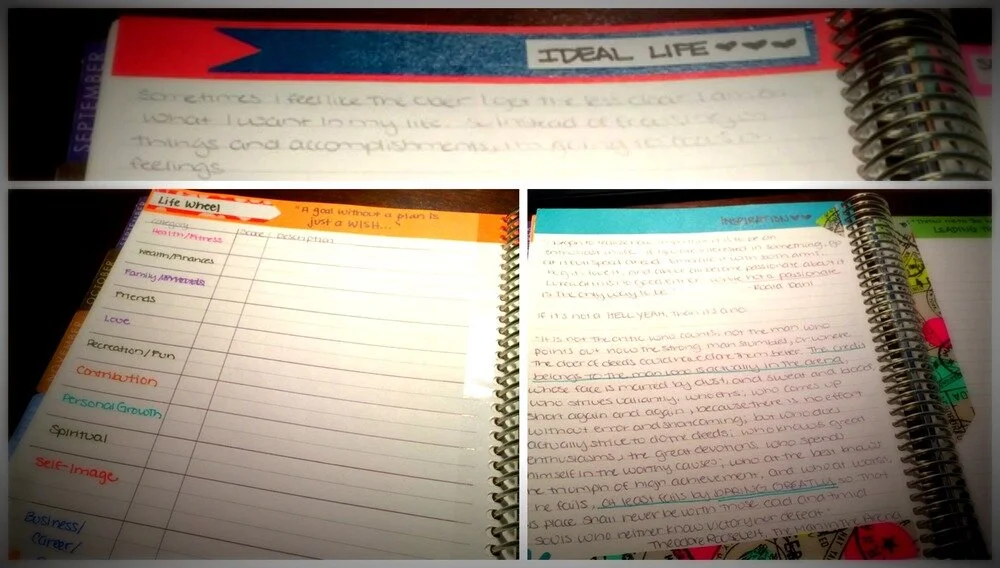 IDEAL LIFE
SEPTEMBER
Sometimes I feel like the older I get the less clear I am on
what I want in my life. So instead of focusing on
things and accomplishments, I'm going to focus on
feelings
Life Wheel
"A goal without a plan is
just a WISH..."
Category
Score
Description
Health/Fitness
Health/Finances
Family
Friends
Love
Recreation/Fun
Contribution
Personal Growth
Spiritual
Self-Image
Business/
Career/
OCTOBER
INSPIRATION
interested in something, go
it with both arms,
become passionate about it
not passionate
is the only way to be."
Roald Dahl
IF it's not a HELL YEAH, then it's a no.
"It is not the critic who counts; not the man who
points out how the strong man stumbles, or where
the doer of deeds could have done them better. The credit
belongs to the man who is actually in the arena,
whose face is marred by dust, and sweat and blood;
who strives valiantly; who errs, who comes up
short again and again, because there is no effort
without error and shortcoming; but who does
actually strive to do the deeds; who knows great
enthusiasms, the great devotions; who spends
himself in the worthy causes; who at the best knows
he triumph of high achievement, and who at worst,
he fails, at least fails by DARING GREATLY so that
s place shall never be with those cold and timid
souls who neither know victory nor defeat."
Theodore Roosevelt, The Man in the Arena
LEADING